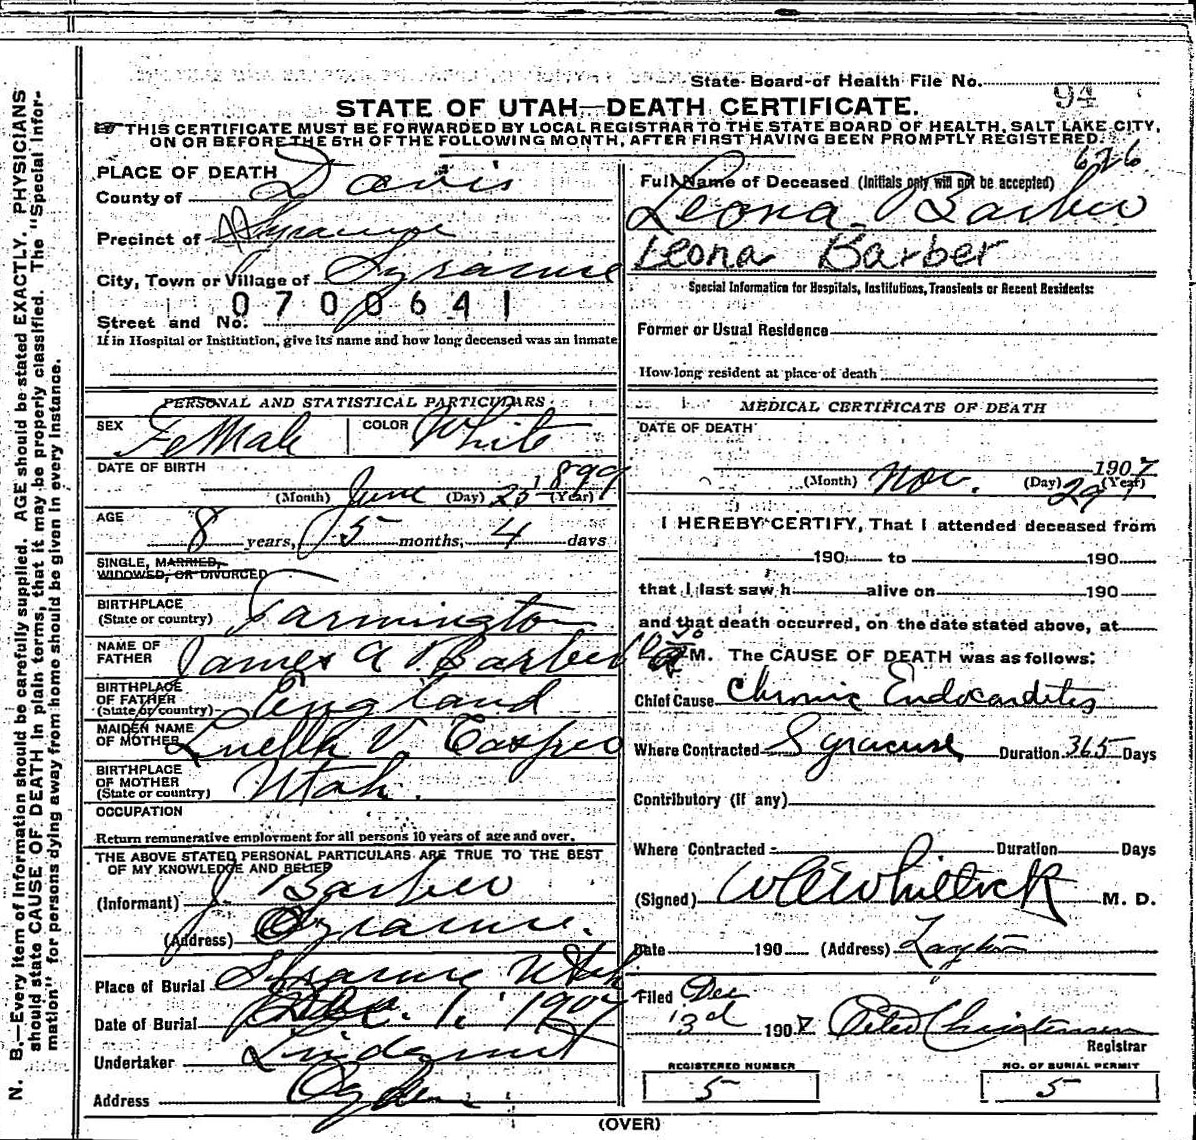 State Board of Health File No. 94
STATE OF UTAH—DEATH CERTIFICATE.
THIS CERTIFICATE MUST BE FORWARDED BY LOCAL REGISTRAR TO THE STATE BOARD OF HEALTH, SALT LAKE CITY,
ON OR BEFORE THE 5TH OF THE FOLLOWING MONTH, AFTER FIRST HAVING BEEN PROMPTLY REGISTERED.
626
PLACE OF DEATH
County of Davis
Precinct of Syracuse
City, Town or Village of Syracuse
0700641
Street and No.
If in Hospital or Institution, give its name and how long deceased was an inmate
Full Name of Deceased (Initials only will not be accepted)
Leona Barber
Leona Barber
Special Information for Hospitals, Institutions, Transients or Recent Residents:
Former or Usual Residence
How long resident at place of death
PERSONAL AND STATISTICAL PARTICULARS.
SEX FeMale COLOR White
DATE OF BIRTH
(Month) June (Day) 25 1899 (Year)
AGE
8 years, 5 months, 4 days
SINGLE, MARRIED,
WIDOWED, OR DIVORCED
BIRTHPLACE
(State or country) Farmington
NAME OF
FATHER James A Barber
BIRTHPLACE
OF FATHER
(State or country) England
MAIDEN NAME
OF MOTHER Luella V. Casper
BIRTHPLACE
OF MOTHER
(State or country) Utah.
OCCUPATION
Return remunerative employment for all persons 10 years of age and over.
THE ABOVE STATED PERSONAL PARTICULARS ARE TRUE TO THE BEST
OF MY KNOWLEDGE AND BELIEF
(Informant) J Barber
(Address) Syracuse.
Place of Burial Syracuse Utah
Date of Burial Dec. 1. 1907
Undertaker Lindquist
Address Ogden
MEDICAL CERTIFICATE OF DEATH
DATE OF DEATH
1907
(Month) Nov. (Day) 29 (Year)
I HEREBY CERTIFY, That I attended deceased from
190 to 190
that I last saw h alive on 190
and that death occurred, on the date stated above, at
M. The CAUSE OF DEATH was as follows:
Chief Cause Chronic Endocarditis
Where Contracted Syracuse Duration 365 Days
Contributory (if any)
Where Contracted Duration Days
(Signed) M. D.
Date 190 (Address) Layton
Filed Dec
3d 1907 Peter Christensen
Registrar
REGISTERED NUMBER
5
NO. OF BURIAL PERMIT
5
(OVER)
N. B.—Every item of information should be carefully supplied. AGE should be stated EXACTLY. PHYSICIANS
should state CAUSE OF DEATH in plain terms, that it may be properly classified. The "Special Infor-
mation" for persons dying away from home should be given in every instance.